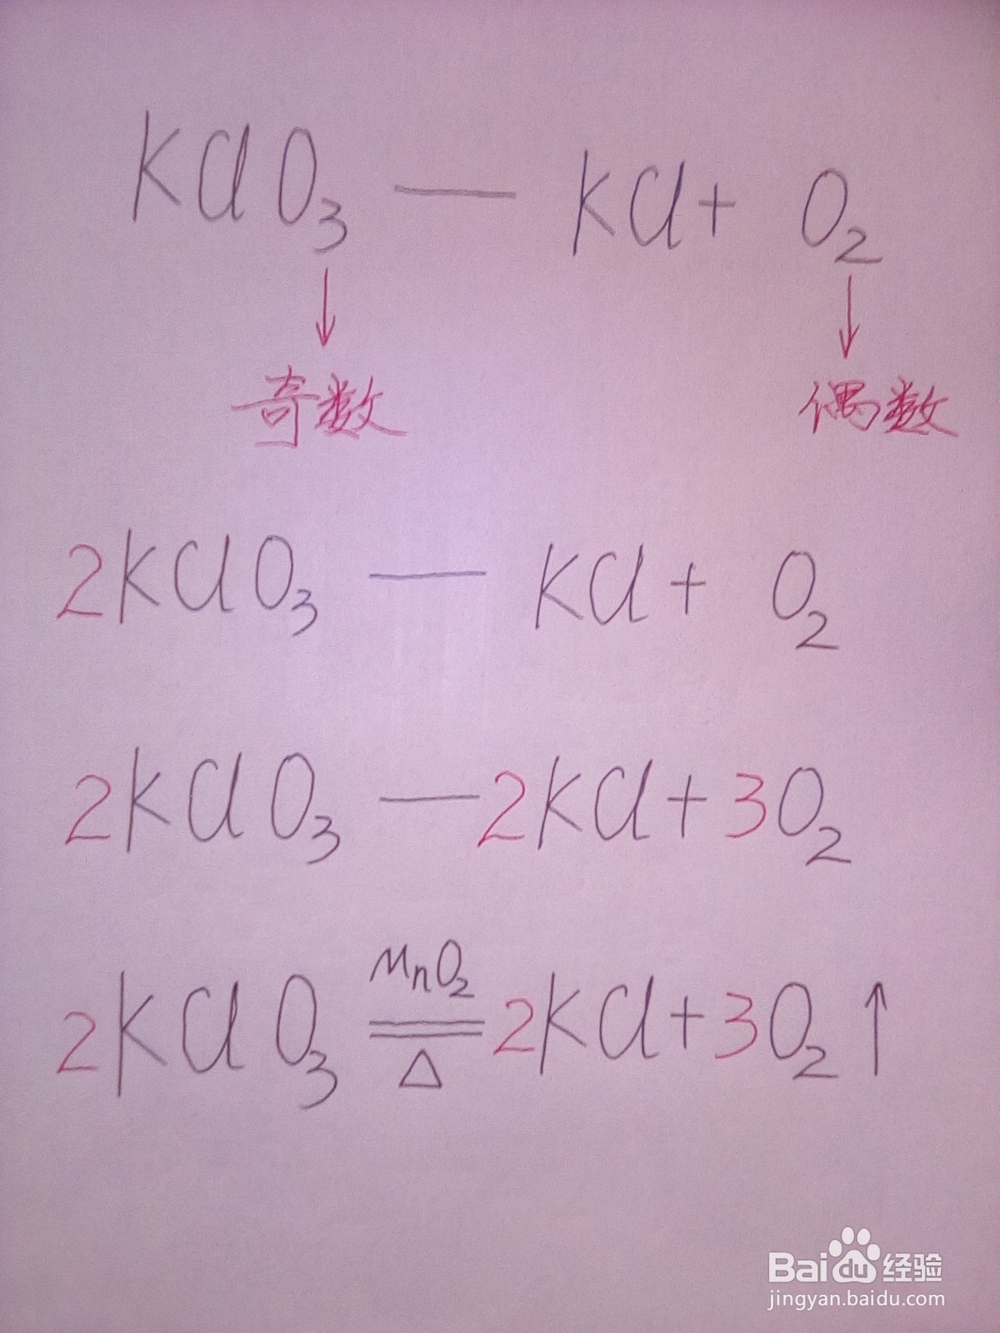 KClO₃ — KCl + O₂
↓ ↓
奇数 偶数
2KClO₃ — KCl + O₂
2KClO₃ — 2KCl + 3O₂
MnO₂
2KClO₃ ══ 2KCl + 3O₂ ↑
△
Baidu 经验
jingyan.baidu.com